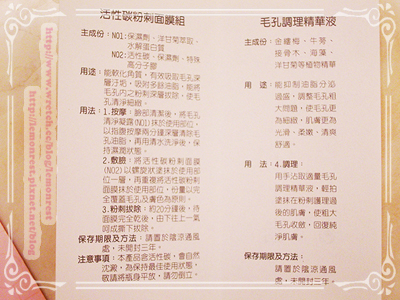 活性碳粉刺面膜組
主成份：NO1:保濕劑、洋甘菊萃取、
水解蛋白質
NO2:活性碳、保濕劑、特殊
高分子膠
用途：能軟化角質，有效吸取毛孔深
層汙垢，吸附多餘油脂，能將
毛孔內之粉刺深層拔除，使毛
孔清淨細緻。
用法：1.按摩。臉部清潔後，將毛孔
清淨凝露(NO1)抹於使用部位，
以指腹按摩兩分鐘深層清除毛
孔油脂，再用清水洗淨後，保
持濕潤狀態。
2.敷臉。將活性碳粉刺面膜
(NO2)以螺旋狀塗抹於使用部
位一層，再重複將活性碳粉刺
面膜抹於使用部位，份量以完
全覆蓋毛孔及膚色為原則。
3.粉刺拔除。約20分鐘後，待
面膜完全乾後，由下往上一氣
呵成撕下拔除。
保存期限及方法：請置於陰涼通風
處，未開封三年。
注意事項：本產品含活性碳，會自然
沈澱，為保持最佳使用狀態，
敬請將瓶身平放，請勿倒立。
毛孔調理精華液
主成份：金縷梅、牛蒡、
接骨木、海藻、
洋甘菊等植物精華
用途：能抑制油脂分泌
過盛，調整毛孔粗
大問題，使毛孔更
為細緻，肌膚更為
光滑、柔嫩，清爽
舒適。
用法：4.調理。
用手沾取適量毛孔
調理精華液，輕拍
塗抹在粉刺護理過
後的肌膚，使粗大
毛孔收斂，回復純
淨肌膚。
保存期限及方法：
請置於陰涼通風
處，未開封三年。
http://www.wretch.cc/blog/lemonrest
http://lemonrest.pixnet.net/blog